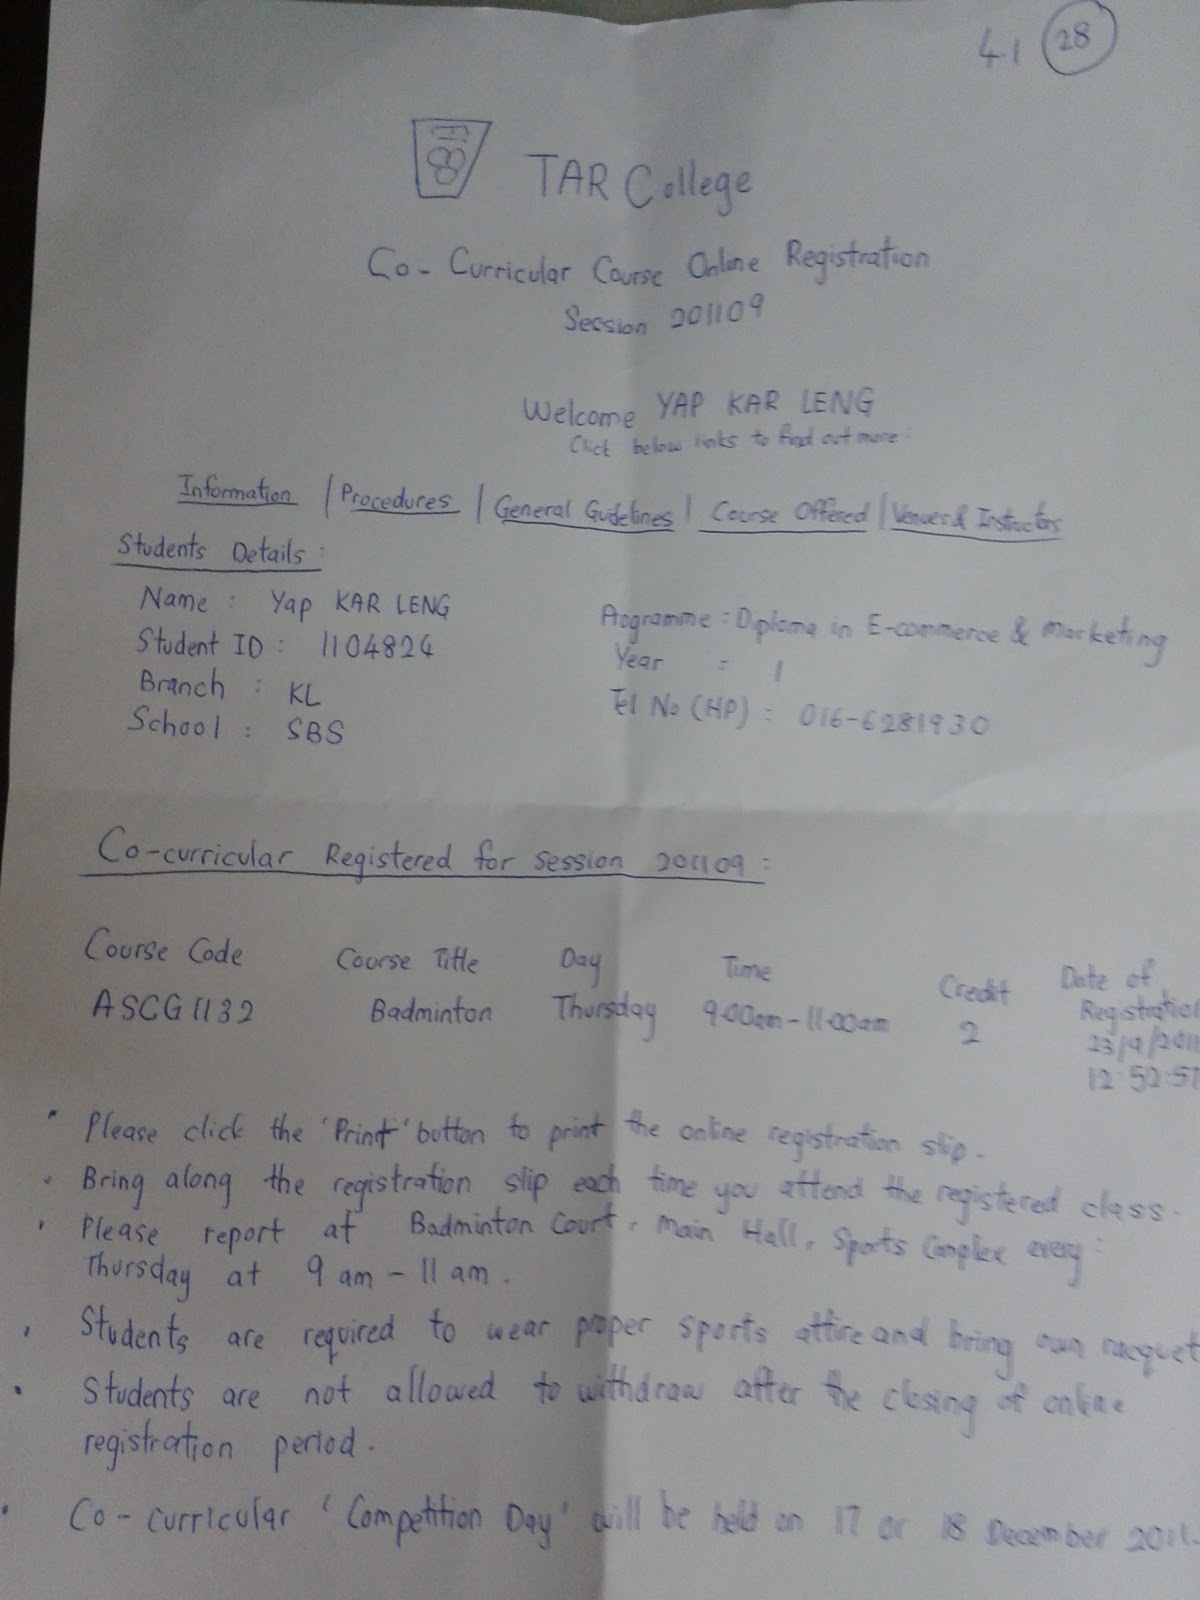 4.1 28
TAR College
Co-Curricular Course Online Registration
Session 201109
Welcome YAP KAR LENG
Click below links to find out more:
Information | Procedures | General Guidelines | Course Offered | Venues & Instructors
Students Details :
Name : Yap KAR LENG
Programme : Diploma in E-commerce & Marketing
Student ID : 1104824
Year : 1
Branch : KL
Tel No (HP) : 016-6281930
School : SBS
Co-curricular Registered for Session 201109 :
Course Code Course Title Day Time Credit Date of Registration
ASCG1132 Badminton Thursday 9.00am - 11.00am 2 23/9/2011
12:52:57
• Please click the 'Print' button to print the online registration slip.
• Bring along the registration slip each time you attend the registered class.
• Please report at Badminton Court, Main Hall, Sports Complex every:
Thursday at 9 am - 11 am.
• Students are required to wear proper sports attire and bring own racquet
• Students are not allowed to withdraw after the closing of online
registration period.
• Co-curricular 'Competition Day' will be held on 17 or 18 December 2011.